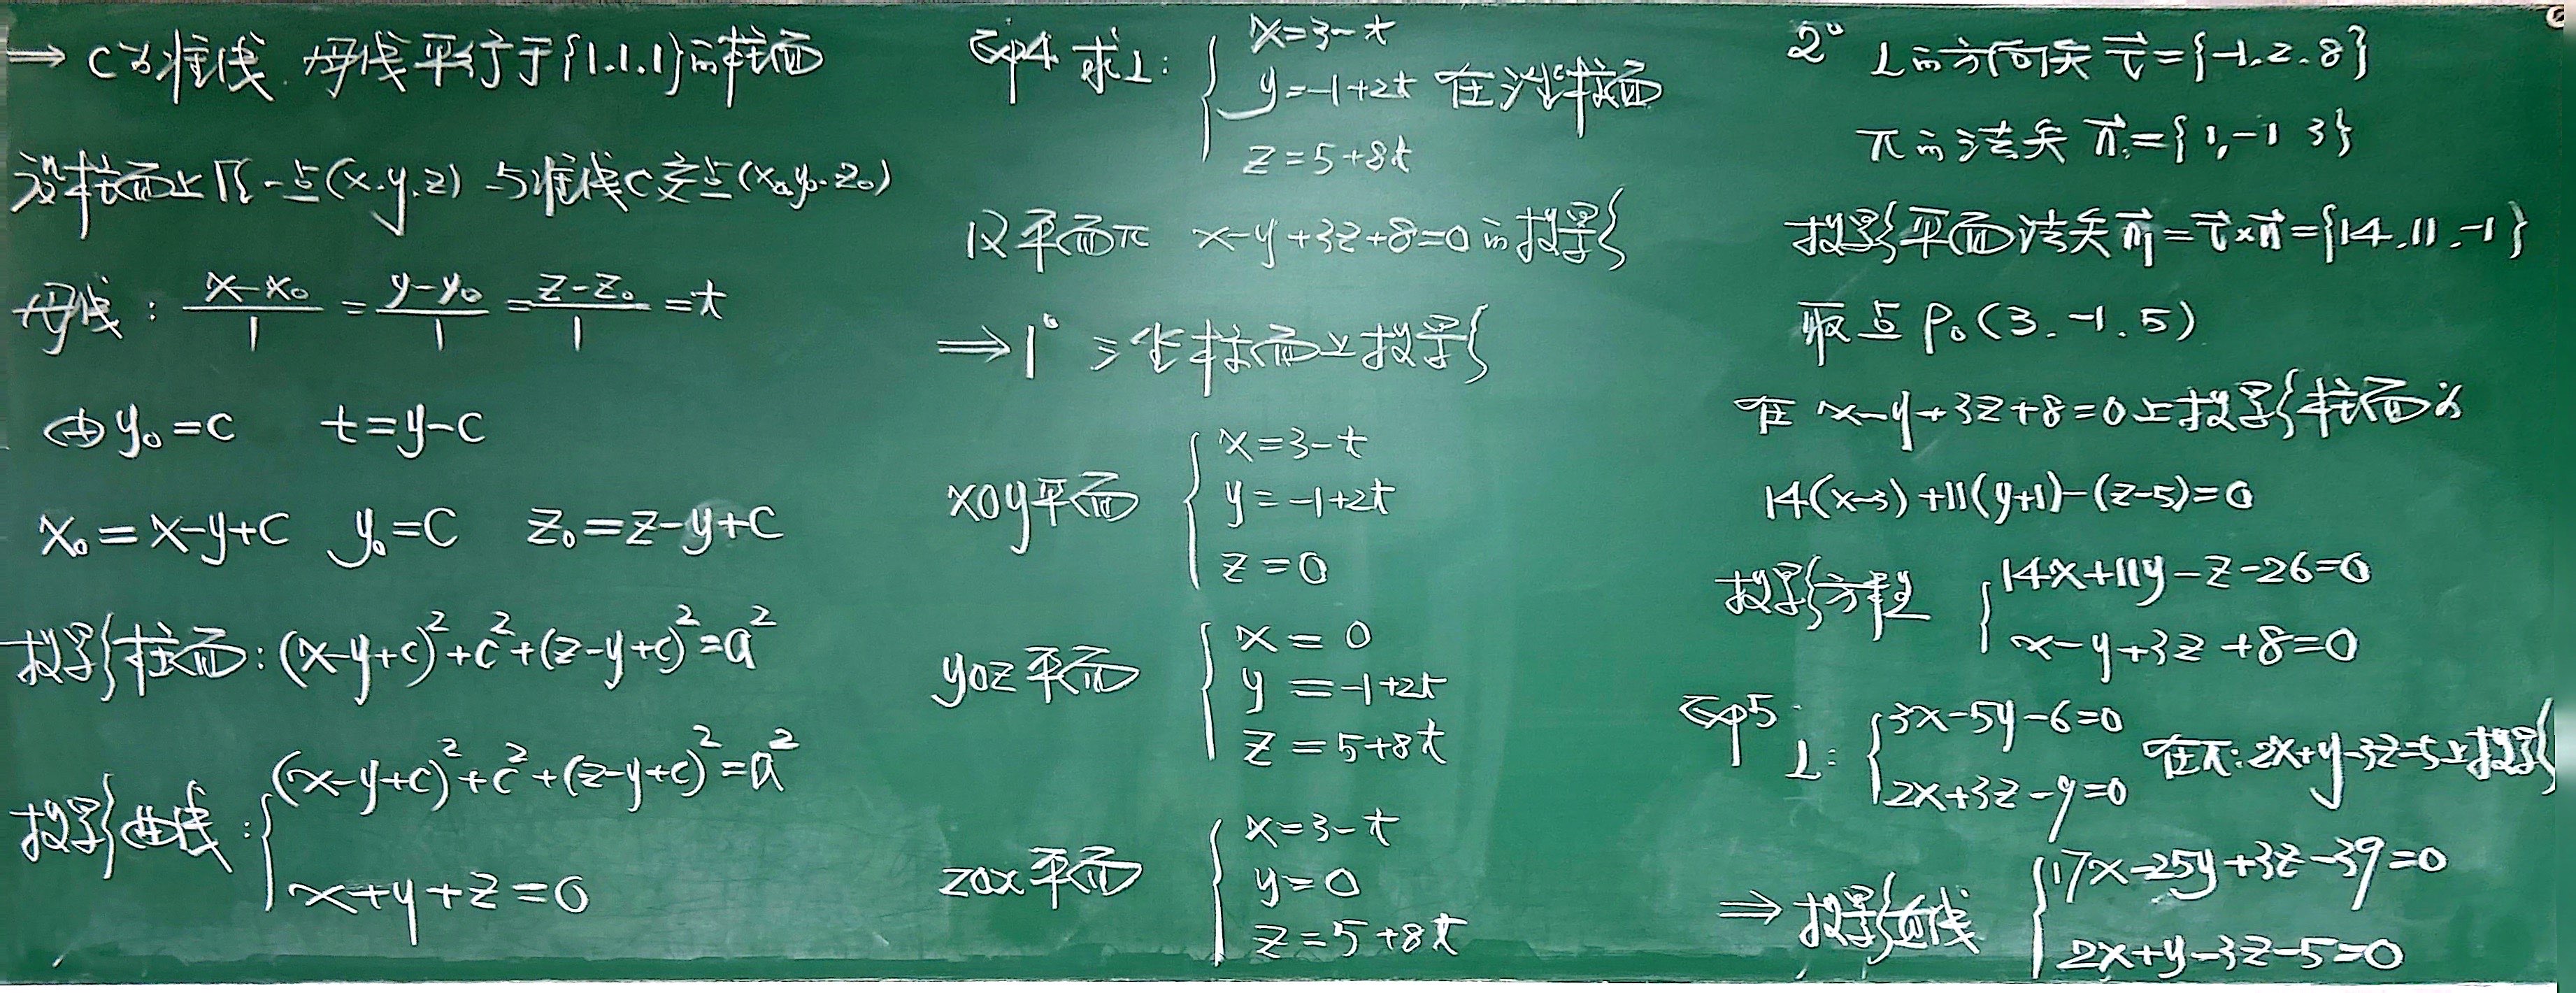 ⇒ C为准线.母线平行于{1.1.1}的柱面
设柱面上任一点(x.y.z) 与准线C交点(x₀.y₀.z₀)
母线: (x-x₀)/1 = (y-y₀)/1 = (z-z₀)/1 = t
由y₀=c t=y-c
x₀=x-y+c y₀=c z₀=z-y+c
投影柱面:(x-y+c)²+c²+(z-y+c)²=a²
投影曲线:{(x-y+c)²+c²+(z-y+c)²=a²
x+y+z=0
Exp4. 求L: {x=3-t
y=-1+2t 在 面
z=5+8t
及平面π x-y+3z+8=0的投影
⇒1° 面上投影
xoy平面 {x=3-t
y=-1+2t
z=0
yoz平面 {x=0
y=-1+2t
z=5+8t
zox平面 {x=3-t
y=0
z=5+8t
2° L的方向矢 τ⃗={-1.2.8}
π的法矢 n⃗={1,-1 3}
投影平面法矢 n⃗₁=τ⃗×n⃗={14.11.-1}
取点P₀(3.-1.5)
在x-y+3z+8=0上投影柱面为
14(x-3)+11(y+1)-(z-5)=0
投影方程 {14x+11y-z-26=0
x-y+3z+8=0
Exp5 L: {3x-5y-6=0
2x+3z-9=0 在π:2x+y-3z=5上投影
⇒投影直线 {17x-25y+3z-39=0
2x+y-3z-5=0